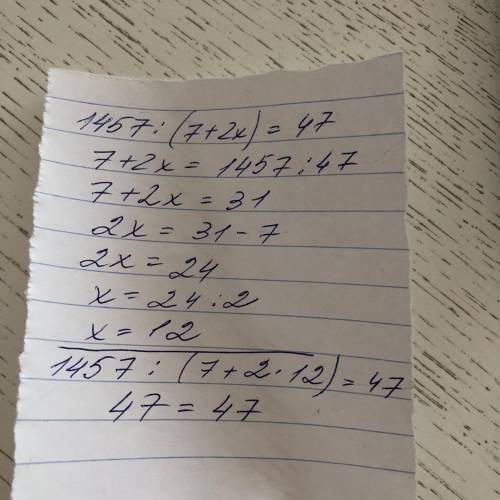 1457 : (7+2x) = 47
7+2x = 1457 : 47
7+2x = 31
2x = 31-7
2x = 24
x = 24 : 2
x = 12
1457 : (7+2·12) = 47
47 = 47